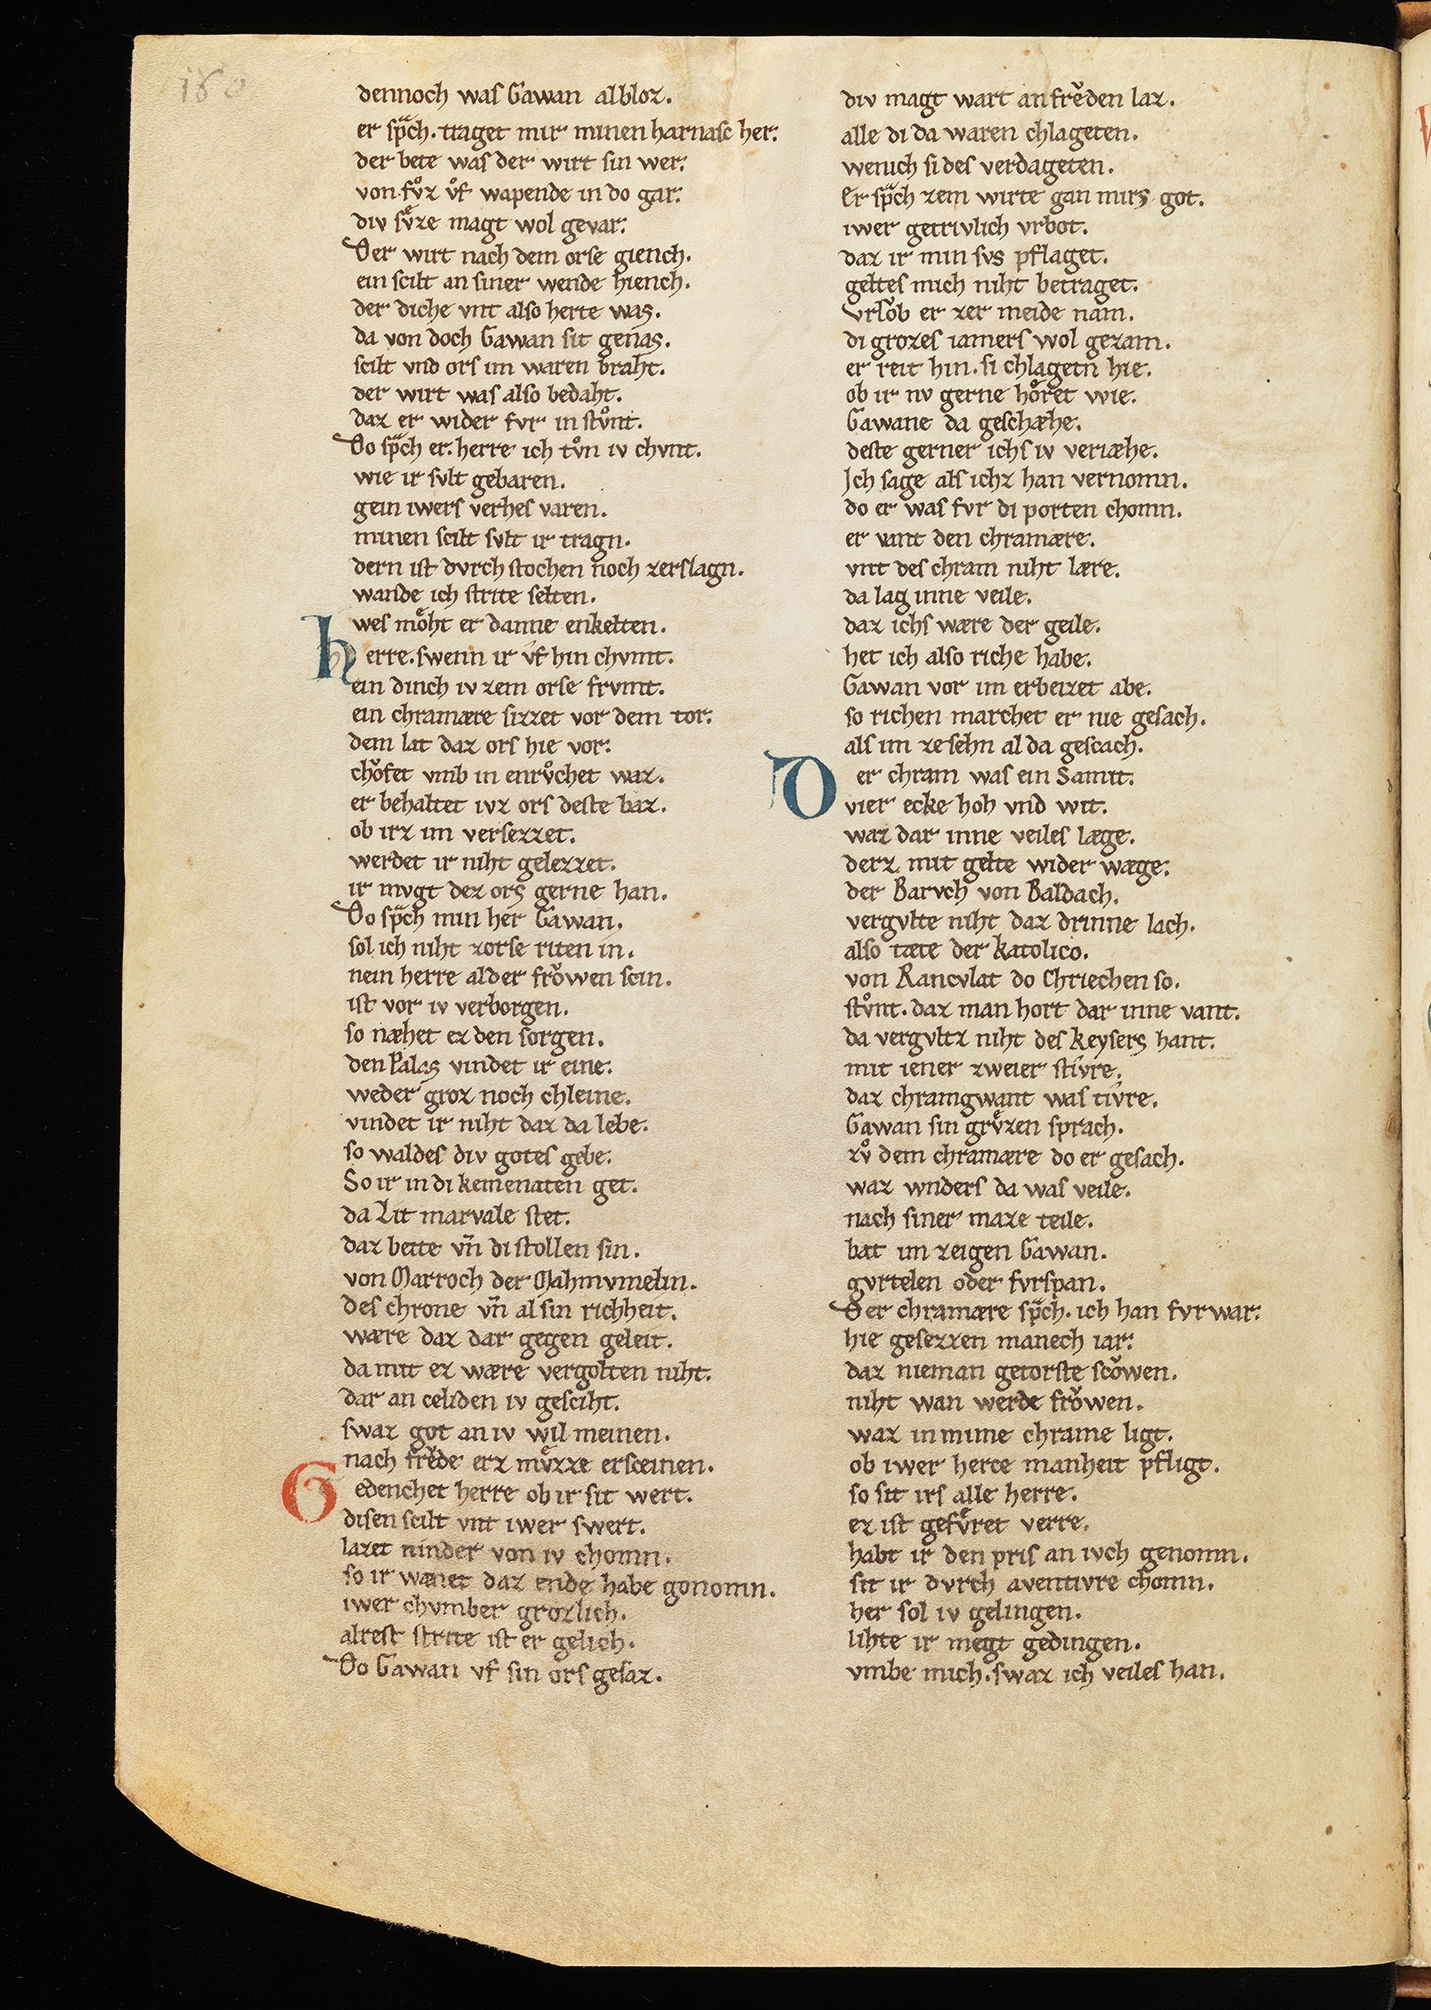 180
dennoch was Gawan albloz.
er sp̈ch. traget mir minen harnasc her.
der bete was der wirt sin wer.
von fvͦz vͦf wapende in do gar.
div svͤze magt wol gevar.
Der wirt nach dem orse giench.
ein scilt an siner wende hiench.
der diche vnt also herte was.
da von doch Gawan sit genas.
scilt vnd ors im waren braht.
der wirt was also bedaht.
daz er wider fvr in stvͦnt.
Do sp̈ch er. herre ich tvͦn iv chvnt.
wie ir svlt gebaren.
gein iwers verhes varen.
minen scilt svlt ir tragn.
dern ist dvrch stochen noch zerslagn.
wande ich strite selten.
wes moͤht er danne enkelten.
herre. swenn ir vͦf hin chvmt.
ein dinch iv zem orse frvmt.
ein chramære sizzet vor dem tor.
dem lat daz ors hie vor.
choͮfet vmb in enrvͦchet waz.
er behaltet ivz ors deste baz.
ob irz im versezzet.
werdet ir niht gelezzet.
ir mvgt dez ors gerne han.
Do sp̈ch min her Gawan.
sol ich niht zorse riten in.
nein herre al der froͮwen scin.
ist vor iv verborgen.
so næhet ez den sorgen.
den Palas vindet ir eine.
weder groz noch chleine.
vindet ir niht daz da lebe.
so waldes div gotes gebe.
So ir in di kemenaten get.
da Lit marvale stet.
daz bette vn̄ di stollen sin.
von Marroch der Mahmvmelin.
des chrone vn̄ al sin richheit.
wære daz dar gegen geleit.
da mit ez wære vergolten niht.
dar an celiden iv gesciht.
swaz got an iv wil meinen.
nach frěde erz mvͤzze ersceinen.
Gedenchet herre ob ir sit wert.
disen scilt vnt iwer swert.
lazet ninder von iv chomn.
so ir wænet daz ende habe gonomn.
iwer chvmber grozlich.
alrest strite ist er gelich.
Do Gawan vf sin ors gesaz.
div magt wart an frěden laz.
alle di da waren chlageten.
wenich si des verdageten.
Er sp̈ch zem wirte gan mirs got.
iwer getrivlich vrbot.
daz ir min svs pflaget.
geltes mich niht betraget.
Vrloͮb er zer meide nam.
di grozes iamers wol gezam.
er reit hin. si chlagetn hie.
ob ir nv gerne hoͤret wie.
Gawane da geschæhe.
deste gerner ichs iv veriæhe.
Ich sage als ichz han vernomn.
do er was fvr di porten chomn.
er vant den chramære.
vnt des chram niht lære.
da lag inne veile.
daz ichs wære der geile.
het ich also riche habe.
Gawan vor im erbeizet abe.
so richen marchet er nie gesach.
als im ze sehn al da gescach.
Der chram was ein Samit.
vier ecke hoh vnd wit.
waz dar inne veiles læge.
derz mit gelte wider wæge.
der Barvch von Baldach.
vergvlte niht daz drinne lach.
also tæte der katolico.
von Rancvlat do Chriechen so.
stvͦnt. daz man hort dar inne vant.
da vergvltz niht des keysers hant.
mit iener zweier stivre.
daz chramgwant was tivre.
Gawan sin grvͤzen sprach.
zvͦ dem chramære do er gesach.
waz wnders da was veile.
nach siner maze teile.
bat im zeigen Gawan.
gvrtelen oder fvrspan.
Der chramære sp̈ch. ich han fvr war.
hie gesezzen manech iar.
daz nieman getorste scoͮwen.
niht wan werde froͮwen.
waz in mime chrame ligt.
ob iwer herce manheit pfligt.
so sit irs alle herre.
ez ist gefvͤret verre.
habt ir den pris an ivch genomn.
sit ir dvrch aventivre chomn.
her sol iv gelingen.
lihte ir megt gedingen.
vmbe mich. swaz ich veiles han.